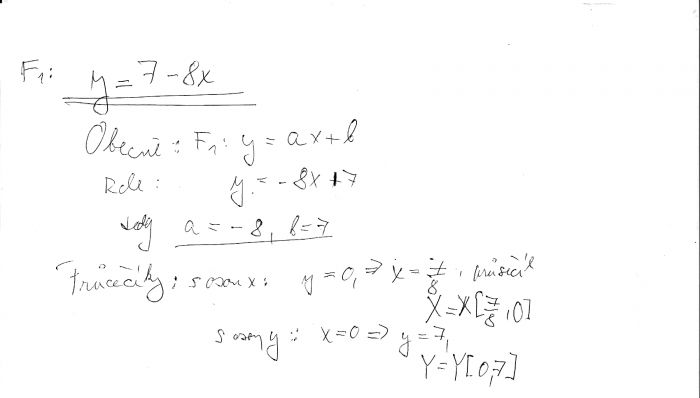 F₁: y = 7 - 8x
Obecně: F₁: y = ax + b
Zde: y = -8x + 7
tedy a = -8, b = 7
Průsečíky: s osou x: y = 0, ⇒ x = 7/8, průsečík
X = X[7/8, 0]
s osou y: x = 0 ⇒ y = 7,
Y = Y[0,7]